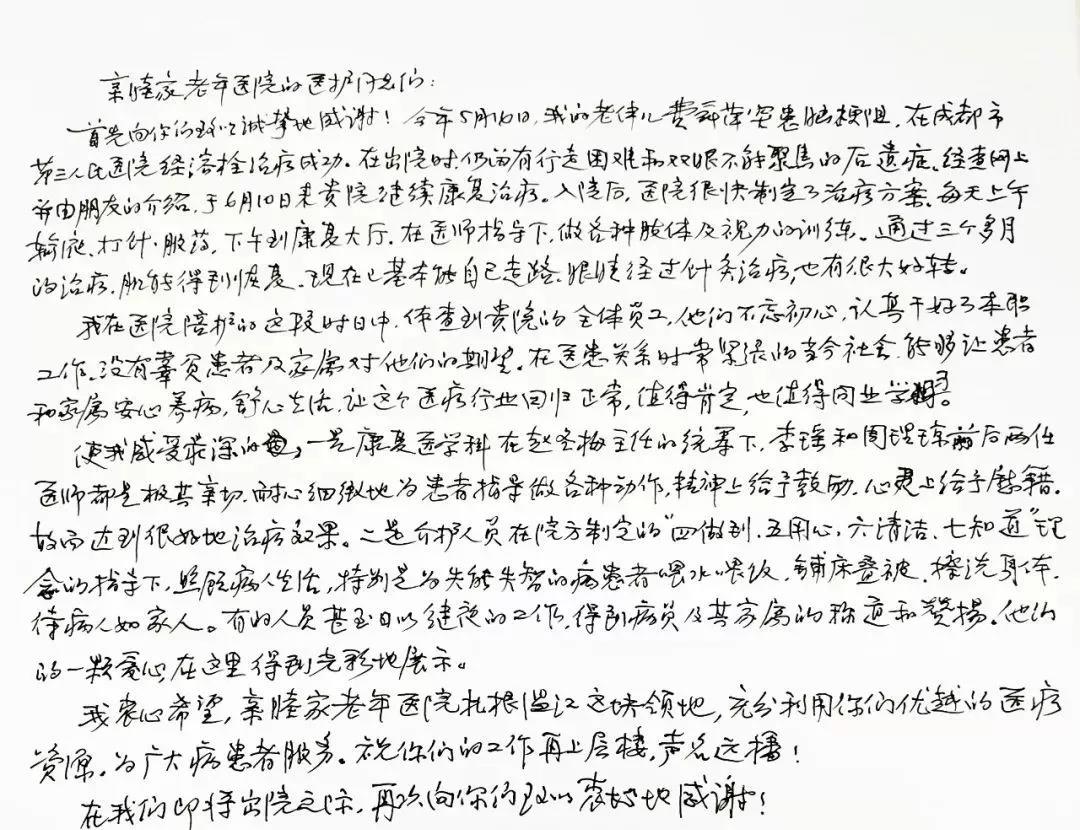 亲睦家老年医院的医护同志们:
首先向你们致以诚挚地感谢!今年5月10日,我的老伴儿费萍突患脑梗阻,在成都市
第三人民医院经溶栓治疗成功。在出院时仍尚有行走困难和双眼不能聚焦的后遗症,经查网上
并由朋友的介绍,于6月10日来贵院继续康复治疗。入院后,医院很快制定了治疗方案,每天上午
输液、打针、服药,下午到康复大厅,在医师指导下,做各种肢体及视力的训练。通过三个多月
的治疗,肌能得到恢复,现在已基本能自己走路,眼睛经过针灸治疗,也有很大好转。
我在医院陪护的这段时日中,体查到贵院的全体员工,他们不忘初心,认真干好了本职
工作,没有辜负患者及家属对他们的期望,在医患关系时常紧张的当今社会,能够让患者
和家属安心养病,舒心生活,让这个医疗行业回归正常,值得肯定,也值得同业学习。
使我感受最深的是,一是康复医学科在赵冬梅主任的统率下,李瑶和周琪琦前后两位
医师都是极其亲切,耐心细微地为患者指导做各种动作,精神上给予鼓励,心灵上给予慰籍,
故而达到很好地治疗效果。二是介护人员在院方制定的"四做到、五用心、六清洁、七知道"理
念的指导下,照顾病人生活,特别是为失能失智的病患者喂水喂饭,铺床叠被,擦洗身体,
待病人如家人。有的人员甚至日以继夜的工作,得到病员及其家属的称道和赞扬。他们
的一颗爱心,在这里得到光彩地展示。
我衷心希望,亲睦家老年医院扎根温江这块领地,充分利用你们优越的医疗
资源,为广大病患者服务。祝你们的工作再上层楼,声名远播!
在我们即将出院之际,再次向你们致以真挚地感谢!